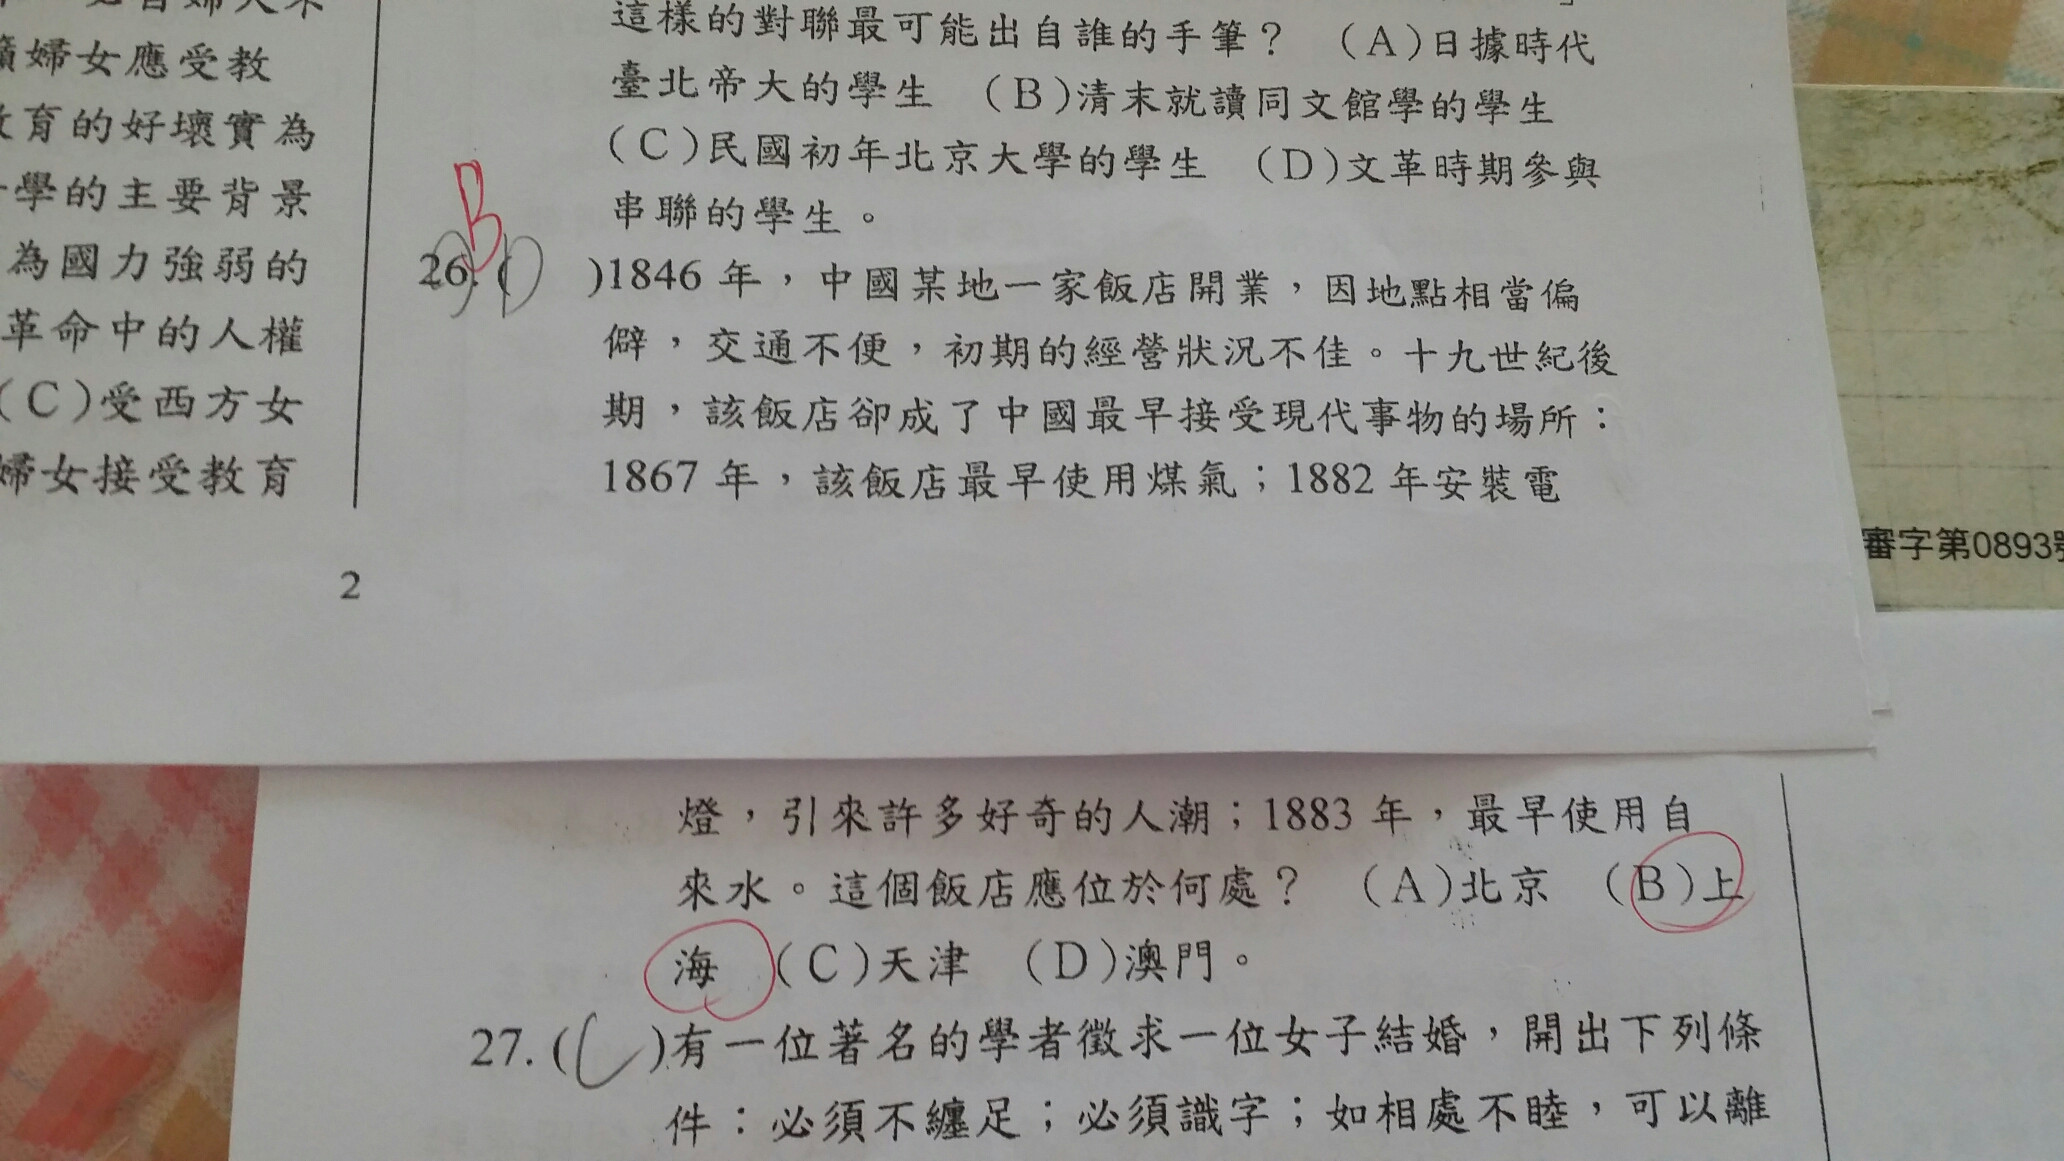 籍婦女應受教
教育的好壞實為
學的主要背景
為國力強弱的
革命中的人權
(C)受西方女
婦女接受教育
2
這樣的對聯最可能出自誰的手筆? (A)日據時代
臺北帝大的學生 (B)清末就讀同文館學的學生
(C)民國初年北京大學的學生 (D)文革時期參與
串聯的學生。
B
26.( )1846 年,中國某地一家飯店開業,因地點相當偏
僻,交通不便,初期的經營狀況不佳。十九世紀後
期,該飯店卻成了中國最早接受現代事物的場所:
1867 年,該飯店最早使用煤氣;1882 年安裝電
審字第0893號
燈,引來許多好奇的人潮;1883 年,最早使用自
來水。這個飯店應位於何處? (A)北京 (B)上
海 (C)天津 (D)澳門。
27.(C)有一位著名的學者徵求一位女子結婚,開出下列條
件:必須不纏足;必須識字;如相處不睦,可以離